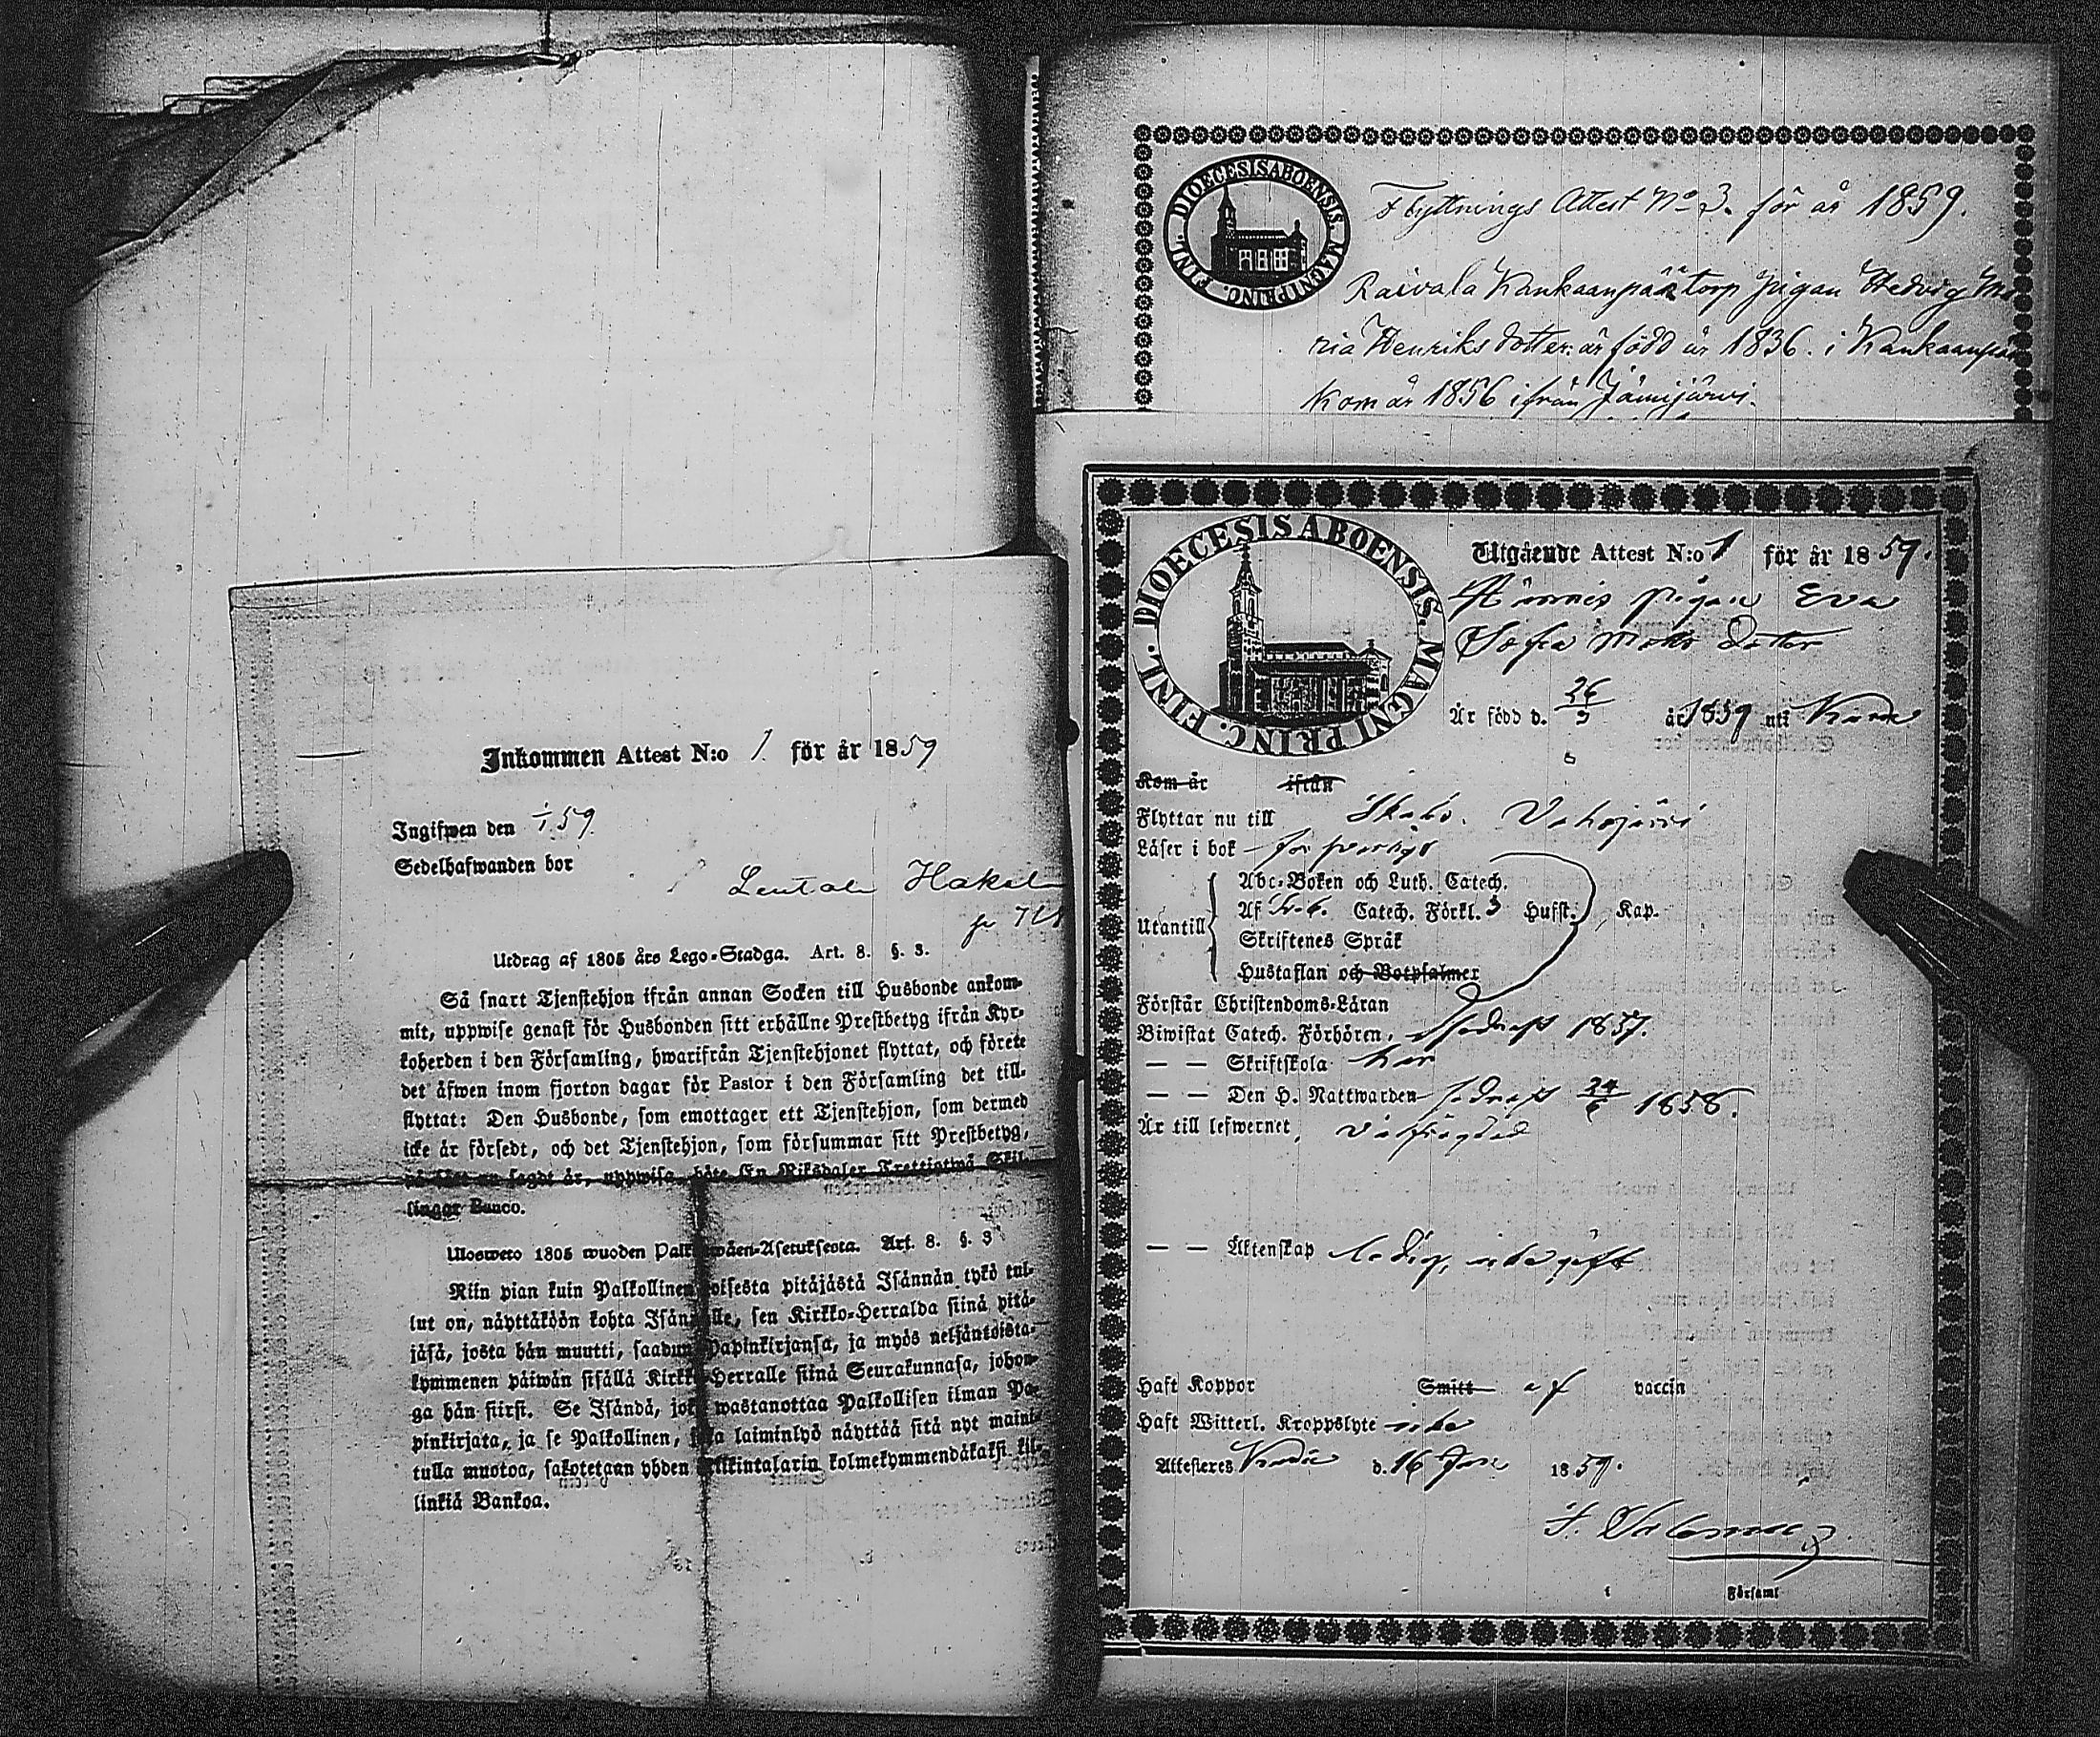 Inkommen Attest N:o 1. för år 1859
Ingifwen den 1/1 59.
Sedelhafwanden bor
Lentola Hakal
Utdrag af 1805 års Lego-Stadga. Art. 8. §. 3.
Så snart Tjenstehjon ifrån annan Socken till Husbonde ankom-
mit, uppwise genast för Husbonden sitt erhållne Prestbetyg ifrån Kyr-
koherden i den Församling, hwarifrån Tjenstehjonet flyttat, och förete
det äfwen inom fjorton dagar för Pastor i den Församling det till-
flyttat: Den Husbonde, som emottager ett Tjenstehjon, som dermed
icke är försedt, och det Tjenstehjon, som försummar sitt Prestbetyg,
på sätt nu sagdt är, uppwisa, böte En Riksdaler Trettiotwå Skil-
lingar Banco.
Ulosweto 1805 wuoden Palkowäen-Asetuksesta. Art. 8. §. 3
Niin pian kuin Palkollinen toisesta pitäjästä Isännän tykö tul-
lut on, näyttäköön kohta Isännälle, sen Kirkko-Herralda siinä pitä-
jäsä, josta hän muutti, saadun Papinkirjansa, ja myös neljäntoista-
kymmenen päiwän sisällä Kirkko-Herralle siinä Seurakunnasa, johon-
ga hän siirsi. Se Isändä, joka wastanottaa Palkollisen ilman Pa-
pinkirjata, ja se Palkollinen, joka laiminlyö näyttää sitä nyt maini-
tulla muotoa, sakotetaan yhden Riikintalarin kolmekymmendäkaksi kil-
linkiä Bankoa.
DIOECESIS ABOENSIS. MAGNI PRINC. FINL.
Flyttnings Attest No 3. för år 1859.
Raivala Kankaanpää torp pigan Hedvig Ma
ria Henriks dotter är född år 1836. i Kankaanpää
Kom år 1856 ifrån Jämijärvi.
DIOECESIS ABOENSIS. MAGNI PRINC. FINL.
Utgående Attest N:o 1 för år 1859.
pigan Eva
Sofia Matts Dotter
Är född d. 26/3 år 1839 uti
Kom år ifrån
Flyttar nu till Ikalis.
Läser i bok försvarligt
Utantill
Abc-Boken och Luth. Catech.
Af Sv-b. Catech. Förkl. 3 Hufst. Kap.
Skriftenes Språk
Hustaflan och Botpsalmer
Förstår Christendoms-Läran
Biwistat Catech. Förhören, sednast 1857.
— — Skriftskola har
— — Den H. Nattwarden sednast 24/6 1858.
Är till lefwernet, välfrägdad
— — Äktenskap ledig, icke gift
Haft Koppor Smitt af vaccin
Haft Witterl. Kroppslyte icke
Attesteras d. 16 Jan 1859.
i Församl